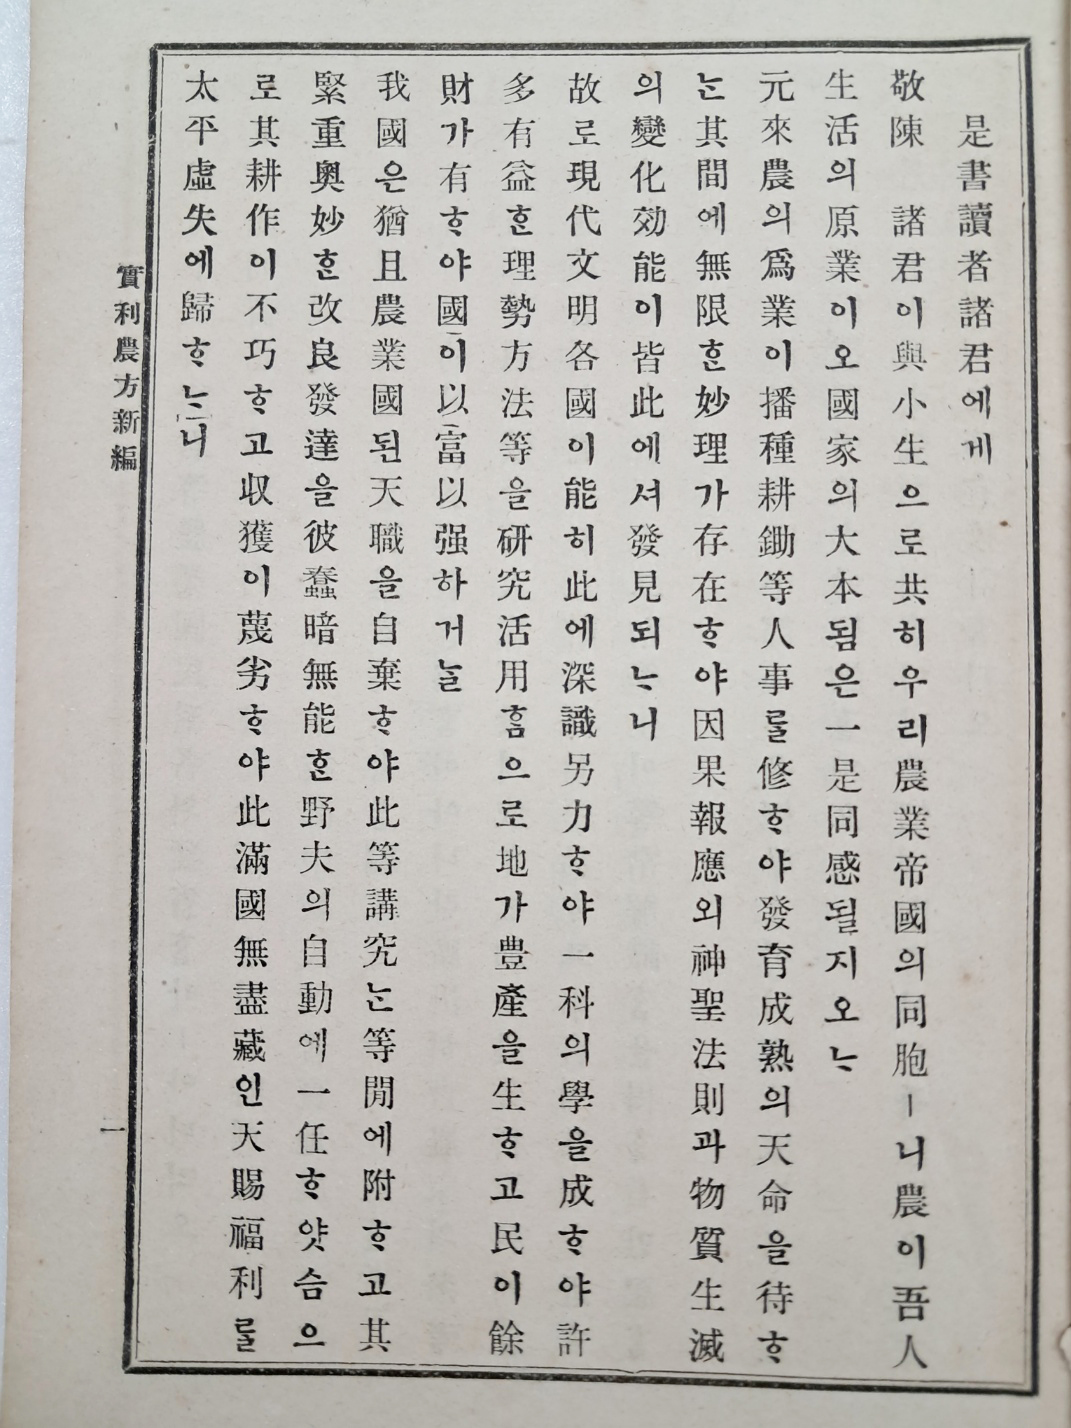 是書讀者諸君에게
敬陳 諸君이與小生으로共히우리農業帝國의同胞ㅣ니農이吾人
生活의原業이오國家의大本됨은一是同感될지오ᄂᆞ
元來農의爲業이播種耕鋤等人事를修ᄒᆞ야發育成熟의天命을待ᄒᆞ
ᄂᆞᆫ其間에無限ᄒᆞᆫ妙理가存在ᄒᆞ야因果報應외神聖法則과物質生滅
의變化効能이皆此에셔發見되ᄂᆞ니
故로現代文明各國이能히此에深識另力ᄒᆞ야一科의學을成ᄒᆞ야許
多有益ᄒᆞᆫ理勢方法等을硏究活用ᄒᆞᆷ으로地가豊產을生ᄒᆞ고民이餘
財가有ᄒᆞ야國이以富以强하거ᄂᆞᆯ
我國은猶且農業國된天職을自棄ᄒᆞ야此等講究ᄂᆞᆫ等閒에附ᄒᆞ고其
緊重奧妙ᄒᆞᆫ改良發達을彼蠢暗無能ᄒᆞᆫ野夫의自動에一任ᄒᆞ얏슴으
로其耕作이不巧ᄒᆞ고収獲이蔑劣ᄒᆞ야此滿國無盡藏인天賜福利를
太平虛失에歸ᄒᆞᄂᆞ니
實利農方新編
一